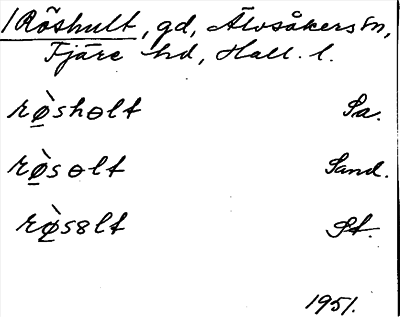 /Röshult, gd, Älvsåkers sn,
Fjäre hd, Hall. l.
rø̱̀shɵlt Sa.
rø̱̀sɵlt Sand.
rø̱̀s8lt St.
1951.